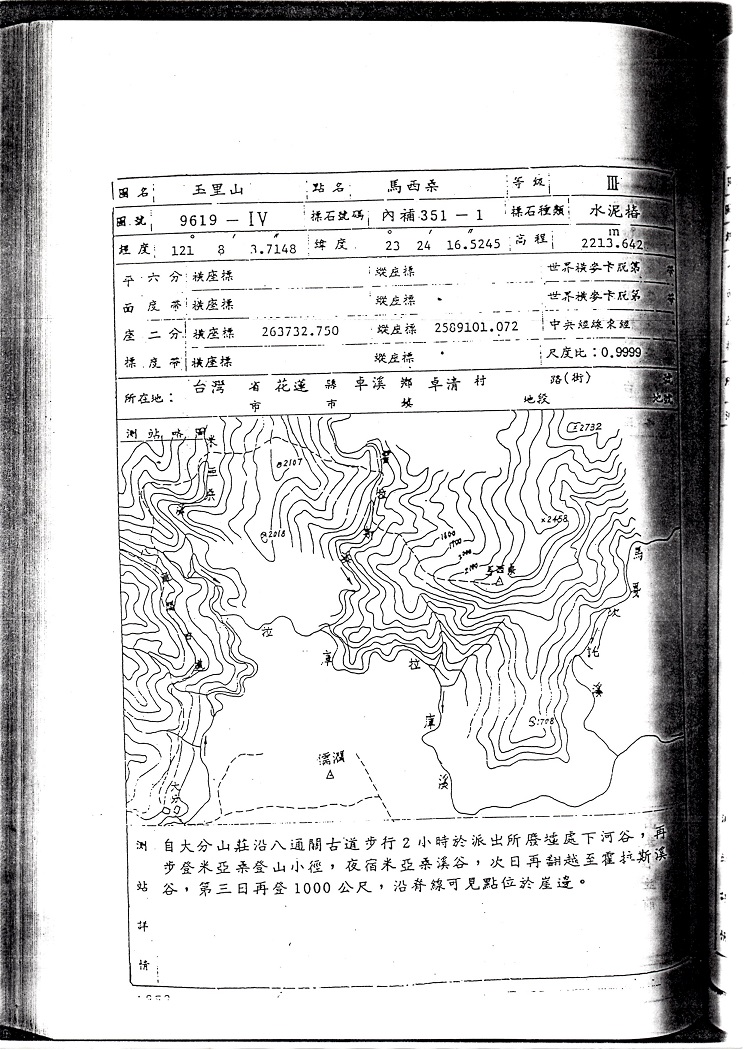 圖名 玉里山 點名 馬西桑 等級 III
圖號 9619 - IV 標石號碼 內補351 - 1 標石種類 水泥樁
經度 121° 8′ 3.7148″ 緯度 23° 24′ 16.5245″ 高程 2213.642m
平面座標
六分度帶 橫座標 縱座標 世界橫麥卡脫第 帶
橫座標 縱座標 世界橫麥卡脫第 帶
二分度帶 橫座標 263732.750 縱座標 2589101.072 中央經線東經
橫座標 縱座標 尺度比:0.9999
所在地: 台灣 省市 花蓮 縣市 卓溪 鄉鎮 卓清 村 路(街) 地段 號 地號
測站略圖
米亞桑溪
2107
2018
霍拉斯溪
2732
2458
1800
1900
2000
2100
馬西桑
馬戛次託溪
拉庫拉庫溪
1708
闊闊
古道
大分
自大分山莊沿八通關古道步行2小時於派出所廢墟處下河谷,再
步登米亞桑登山小徑,夜宿米亞桑溪谷,次日再翻越至霍拉斯溪
谷,第三日再登1000公尺,沿脊線可見點位於崖邊。
測站詳情